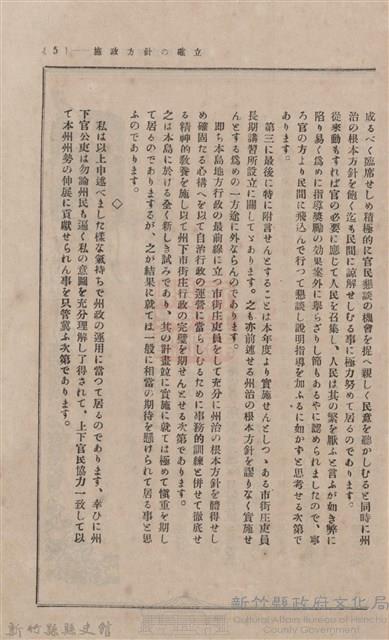 ( 5 )　立確の針方政施
成るべく臨席せしめ積極的に官民懇談の機會を捉へ親しく民意を聽かしむると同時に州
治の根本方針を飽く迄も民間に諒解せしむる事に極力努めて居るのであります。
從來動もすれば官の必要に應じて人民を召集し、人民は其の繁を厭ふと言ふが如き弊に
陷り易く爲めに指導奬勵の効果案外に擧らざりし節もあるやに認められましたので、寧
ろ官の方より民間に飛込んで行つて懇談し說明指導を加ふるに如かずと思考せる次第で
あります。
第三に最後に特に附言せんとすることは本年度より實施せんとしつゝある市街庄吏員
長期講習所設立に關してゞあります。之も亦前述せる州治の根本方針を謬りなく實施せ
んとする爲めの一方途に外ならんのであります。
即ち本島地方行政の最前線に立つ市街庄吏員をして充分に州治の根本方針を體得せし
め確固たる心構へを以て自治行政の運營に當らしむるために事務的訓練と併せて徹底せ
る精神的敎養を施し以て州下市街庄行政の完璧を期せんとせる次第であります。
之は本島に於ける全く新しき試みであり、其の計畫竝に實施に就ては極めて愼重を期し
て居るのでありまするが、之が結果に就ては一般に相當の期待を懸けられて居る事と思
ふのであります。
◇
私は以上申述べました樣な氣持ちで州政の運用に當つて居るのであります、幸ひに州
下官公吏は勿論州民も逼く私の意圖を充分理解し了得されて、上下官民協力一致して以
て本州州勢の伸展に貢獻せられん事を只管冀ふ次第であります。
新竹縣縣史館
新竹縣政府文化局
Cultural Affairs Bureau of Hsinchu
County Government